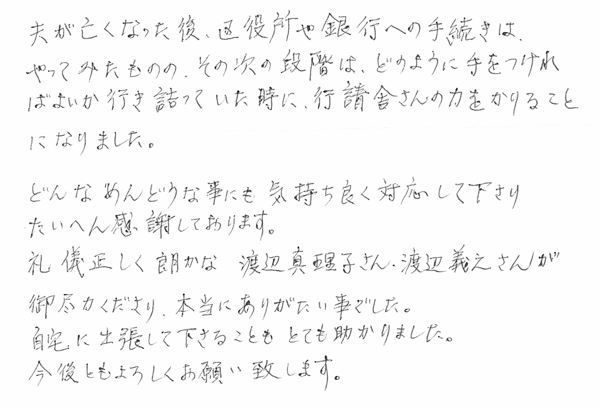 夫が亡くなった後、区役所や銀行への手続きは、
やってみたものの、その次の段階は、どのように手をつけれ
ばよいか行き詰っていた時に、行請舎さんの力をかりること
になりました。
どんなめんどうな事にも気持ち良く対応して下さり
たいへん感謝しております。
礼儀正しく朗かな 渡辺真理子さん・渡辺義之さんが
御尽力くださり、本当にありがたい事でした。
自宅に出張して下さることもとても助かりました。
今後ともよろしくお願い致します。